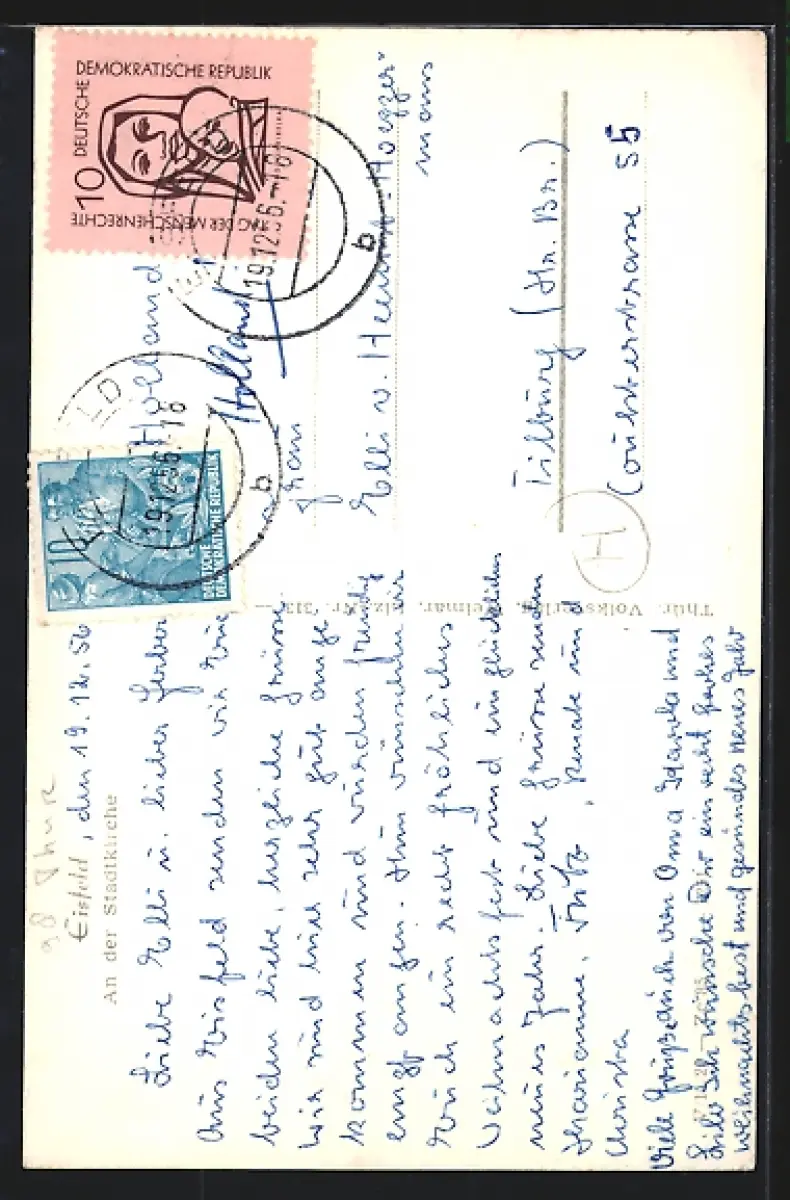 98 Thür
Eisfeld, den 19.12.56
An der Stadtkirche
Liebe Elli u. lieber
Aus Eisfeld senden wir Euch
beiden liebe, herzliche Grüsse.
Wir sind hier sehr gut ange
kommen und wurden freudig
empfangen. Nun wünschen wir
Euch ein recht fröhliches
Weihnachtsfest und ein glückliches
neues Jahr. Liebe Grüsse senden
Marianne, Fritz, Renate und
Christa
Viele Grüße auch von Oma und
Ich wünsche Dir ein recht frohes
Weihnachtsfest und gesundes neues Jahr
Thür. Volksverlag, Weimar, Liz.-Nr. 313
DEUTSCHE DEMOKRATISCHE REPUBLIK
10
TAG DER MENSCHENRECHTE
10
DEUTSCHE
DEMOKRATISCHE REPUBLIK
EISFELD
19.12.56.-18
b
19.12.56.-18
b
Holland
Holland
Frau
Elli v.
mans
Tilburg (N. Br.)
55
H